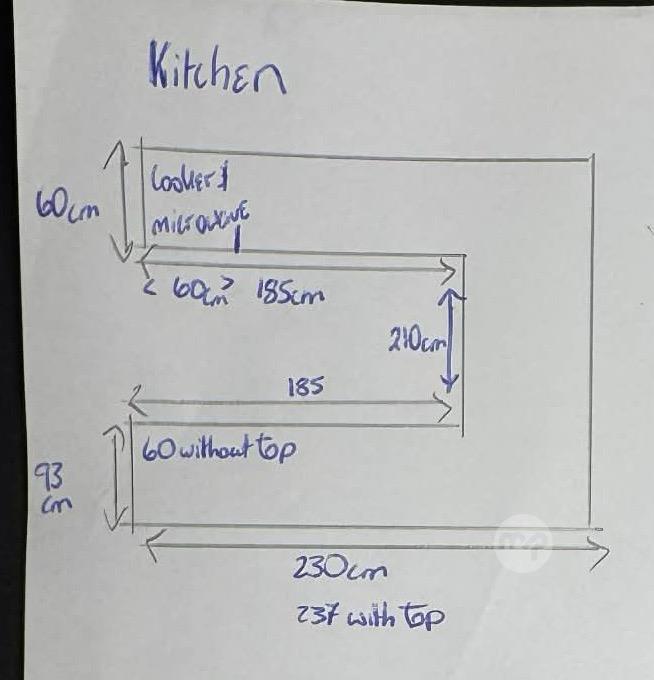 Kitchen
60cm
Cooker &
microwave
< 60cm > 185cm
210cm
185
60 without top
93
cm
230cm
237 with top